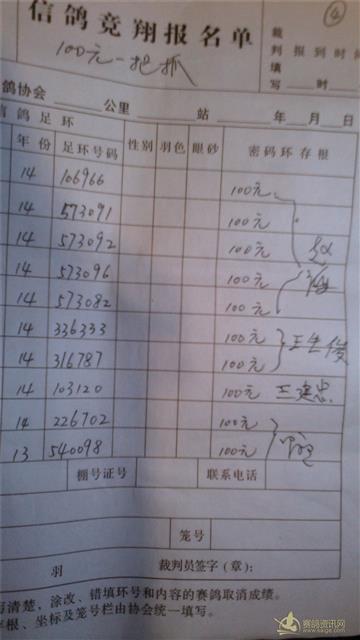 ④
信鸽竞翔报名单
裁判填写 报到时间 时
100元一把抓
鸽协会 公里 站 年 月 日
信鸽足环
年份 足环号码 性别 羽色 眼砂 密码环存根
14 106966 100元
14 573091 100元
14 573092 100元
14 573096 100元
14 573082 100元
14 336333 100元
14 316787 100元 王生俊
14 103120 100元 王建忠
14 226702 100元
13 540098 100元
棚号证号 联系电话
笼号
羽 裁判员签字(章):
写清楚,涂改、错填环号和内容的赛鸽取消成绩。
存根、坐标及笼号栏由协会统一填写。
赛鸽资讯网
www.saige.com